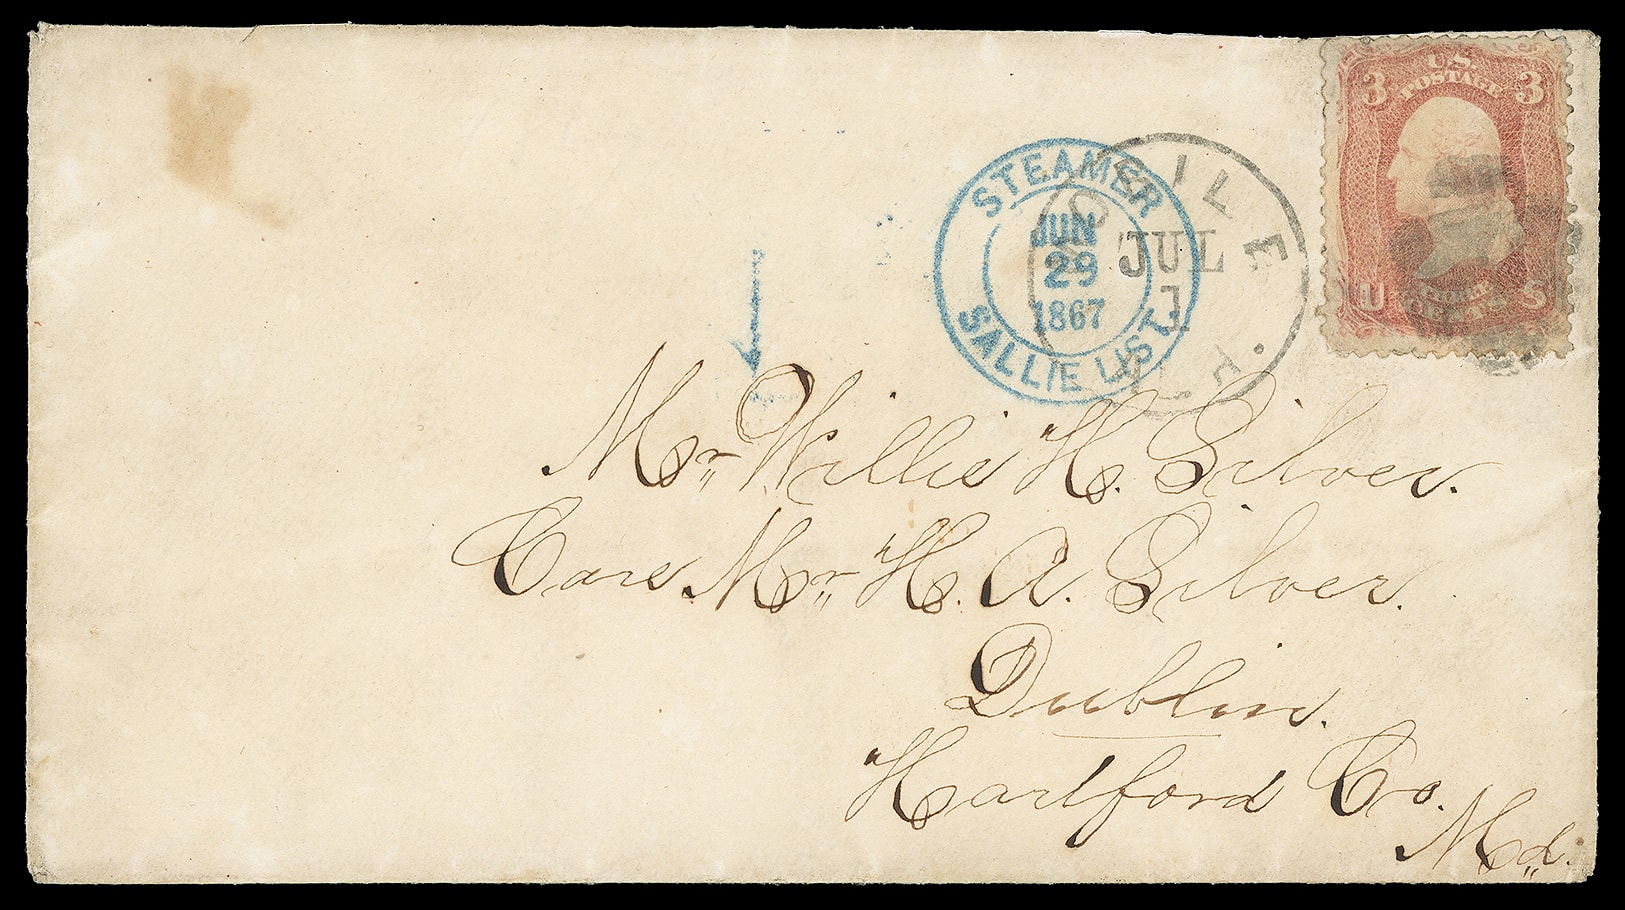 U.S.
POSTAGE
3 3
U S
THREE
CENTS
STEAMER
JUN
29
1867
SALLIE LIST.
MOBILE
JUL
1
ALA.
Mr. Willie H. Silver.
Care Mr. H. A. Silver.
Dublin.
Hartford Co.
Md.